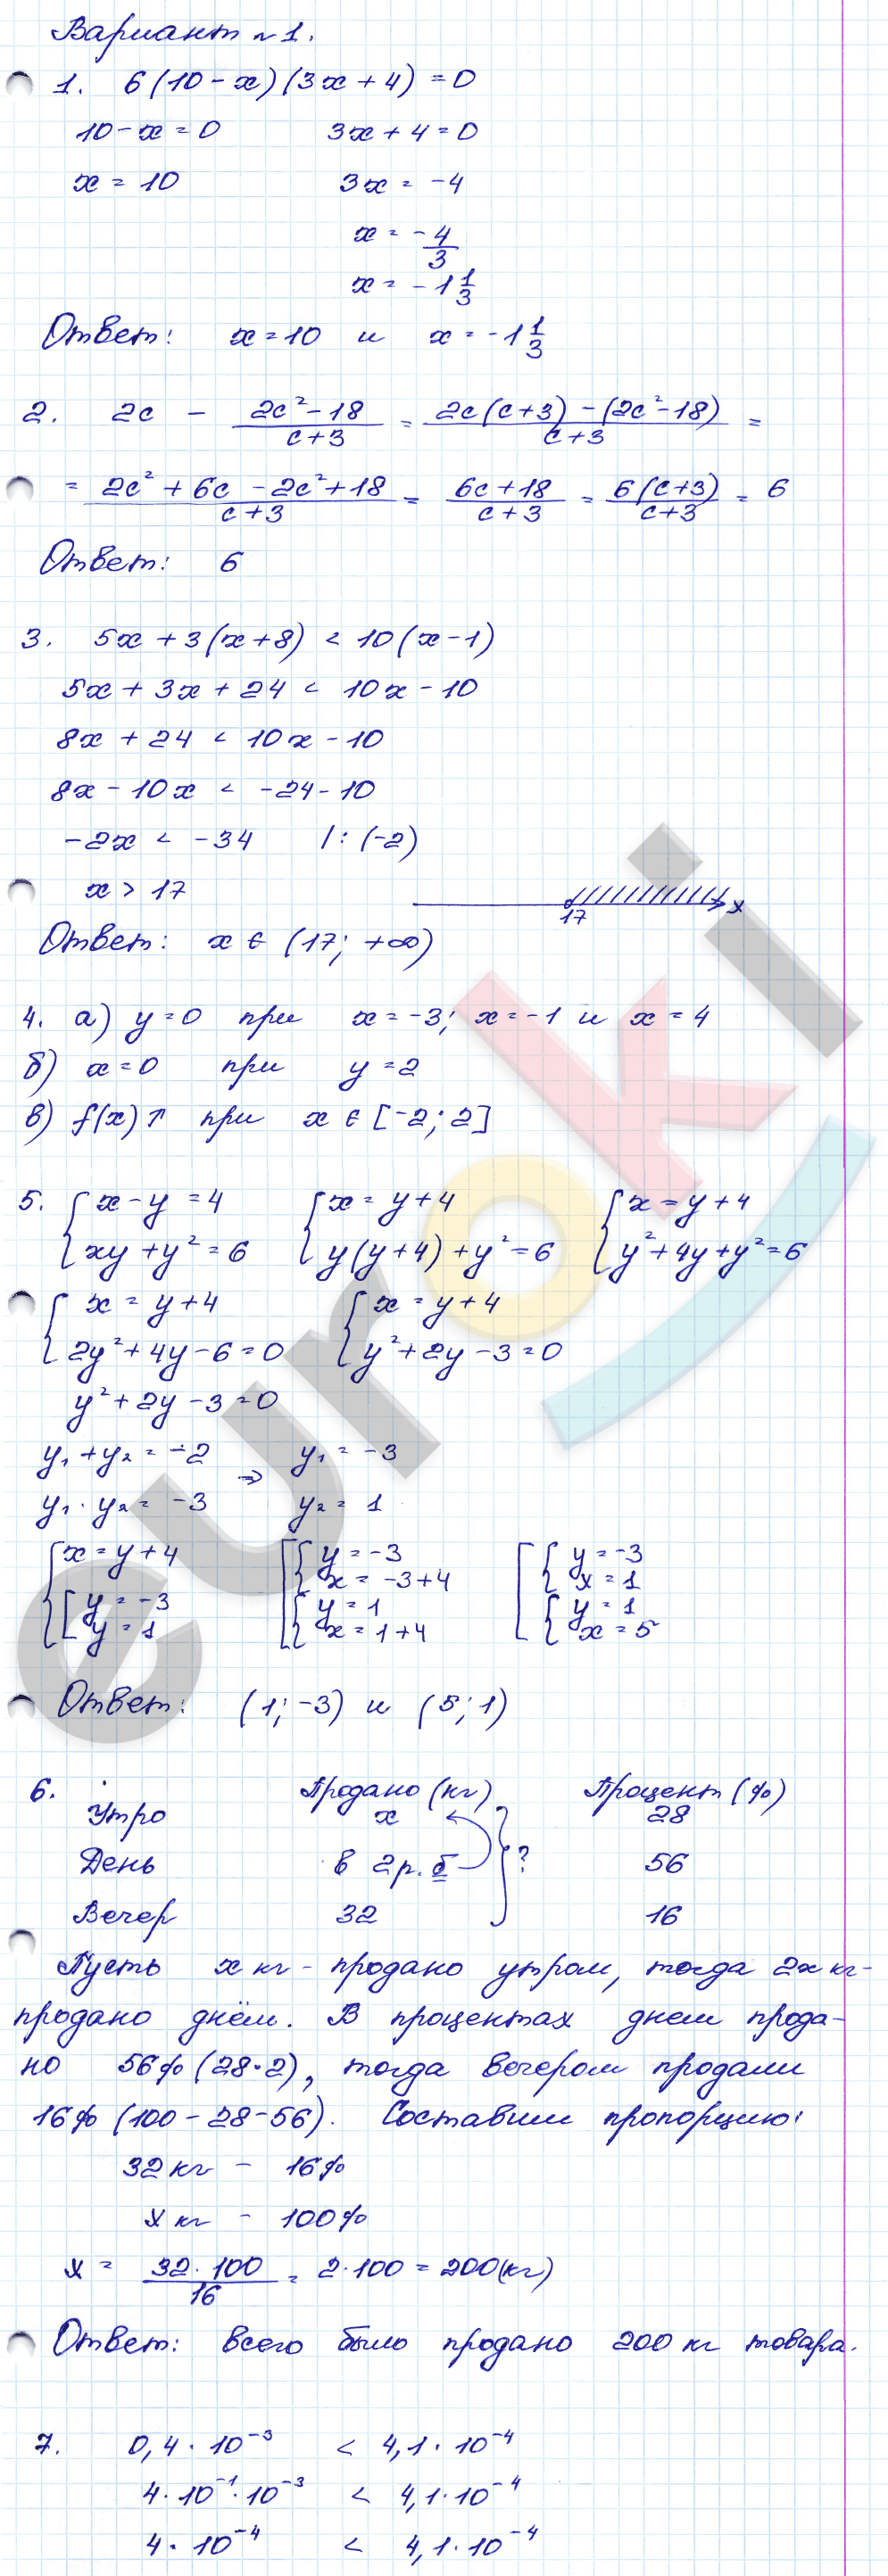 Вариант №1.
1. 6(10-x)(3x+4)=0
10-x=0 3x+4=0
x=10 3x=-4
x=-4/3
x=-1 1/3
Ответ: x=10 и x=-1 1/3
2. 2c - (2c²-18)/(c+3) = (2c(c+3)-(2c²-18))/(c+3) =
= (2c²+6c-2c²+18)/(c+3) = (6c+18)/(c+3) = 6(c+3)/(c+3) = 6
Ответ: 6
3. 5x+3(x+8) < 10(x-1)
5x+3x+24 < 10x-10
8x+24 < 10x-10
8x-10x < -24-10
-2x < -34 |:(-2)
x > 17
17 x
Ответ: x ∈ (17; +∞)
4. а) y=0 при x=-3; x=-1 и x=4
б) x=0 при y=2
в) f(x)↑ при x ∈ [-2; 2]
5. { x-y=4 { x=y+4 { x=y+4
{ xy+y²=6 { y(y+4)+y²=6 { y²+4y+y²=6
{ x=y+4 { x=y+4
{ 2y²+4y-6=0 { y²+2y-3=0
y²+2y-3=0
y₁+y₂=-2 ⇒ y₁=-3
y₁·y₂=-3 y₂=1
{ x=y+4 [ { y=-3 [ { y=-3
{ x=-3+4 { x=1
[ y=-3 { y=1 { y=1
y=1 { x=1+4 { x=5
Ответ: (1; -3) и (5; 1)
6. Продано (кг) Процент (%)
Утро x 28
День в 2 р. б ? 56
Вечер 32 16
Пусть x кг - продано утром, тогда 2x кг -
продано днём. В процентах днем прода-
но 56% (28·2), тогда вечером продали
16% (100-28-56). Составим пропорцию:
32 кг - 16%
x кг - 100%
x = 32·100/16 = 2·100 = 200(кг)
Ответ: всего было продано 200 кг товара.
7. 0,4·10⁻³ < 4,1·10⁻⁴
4·10⁻¹·10⁻³ < 4,1·10⁻⁴
4·10⁻⁴ < 4,1·10⁻⁴
euroki